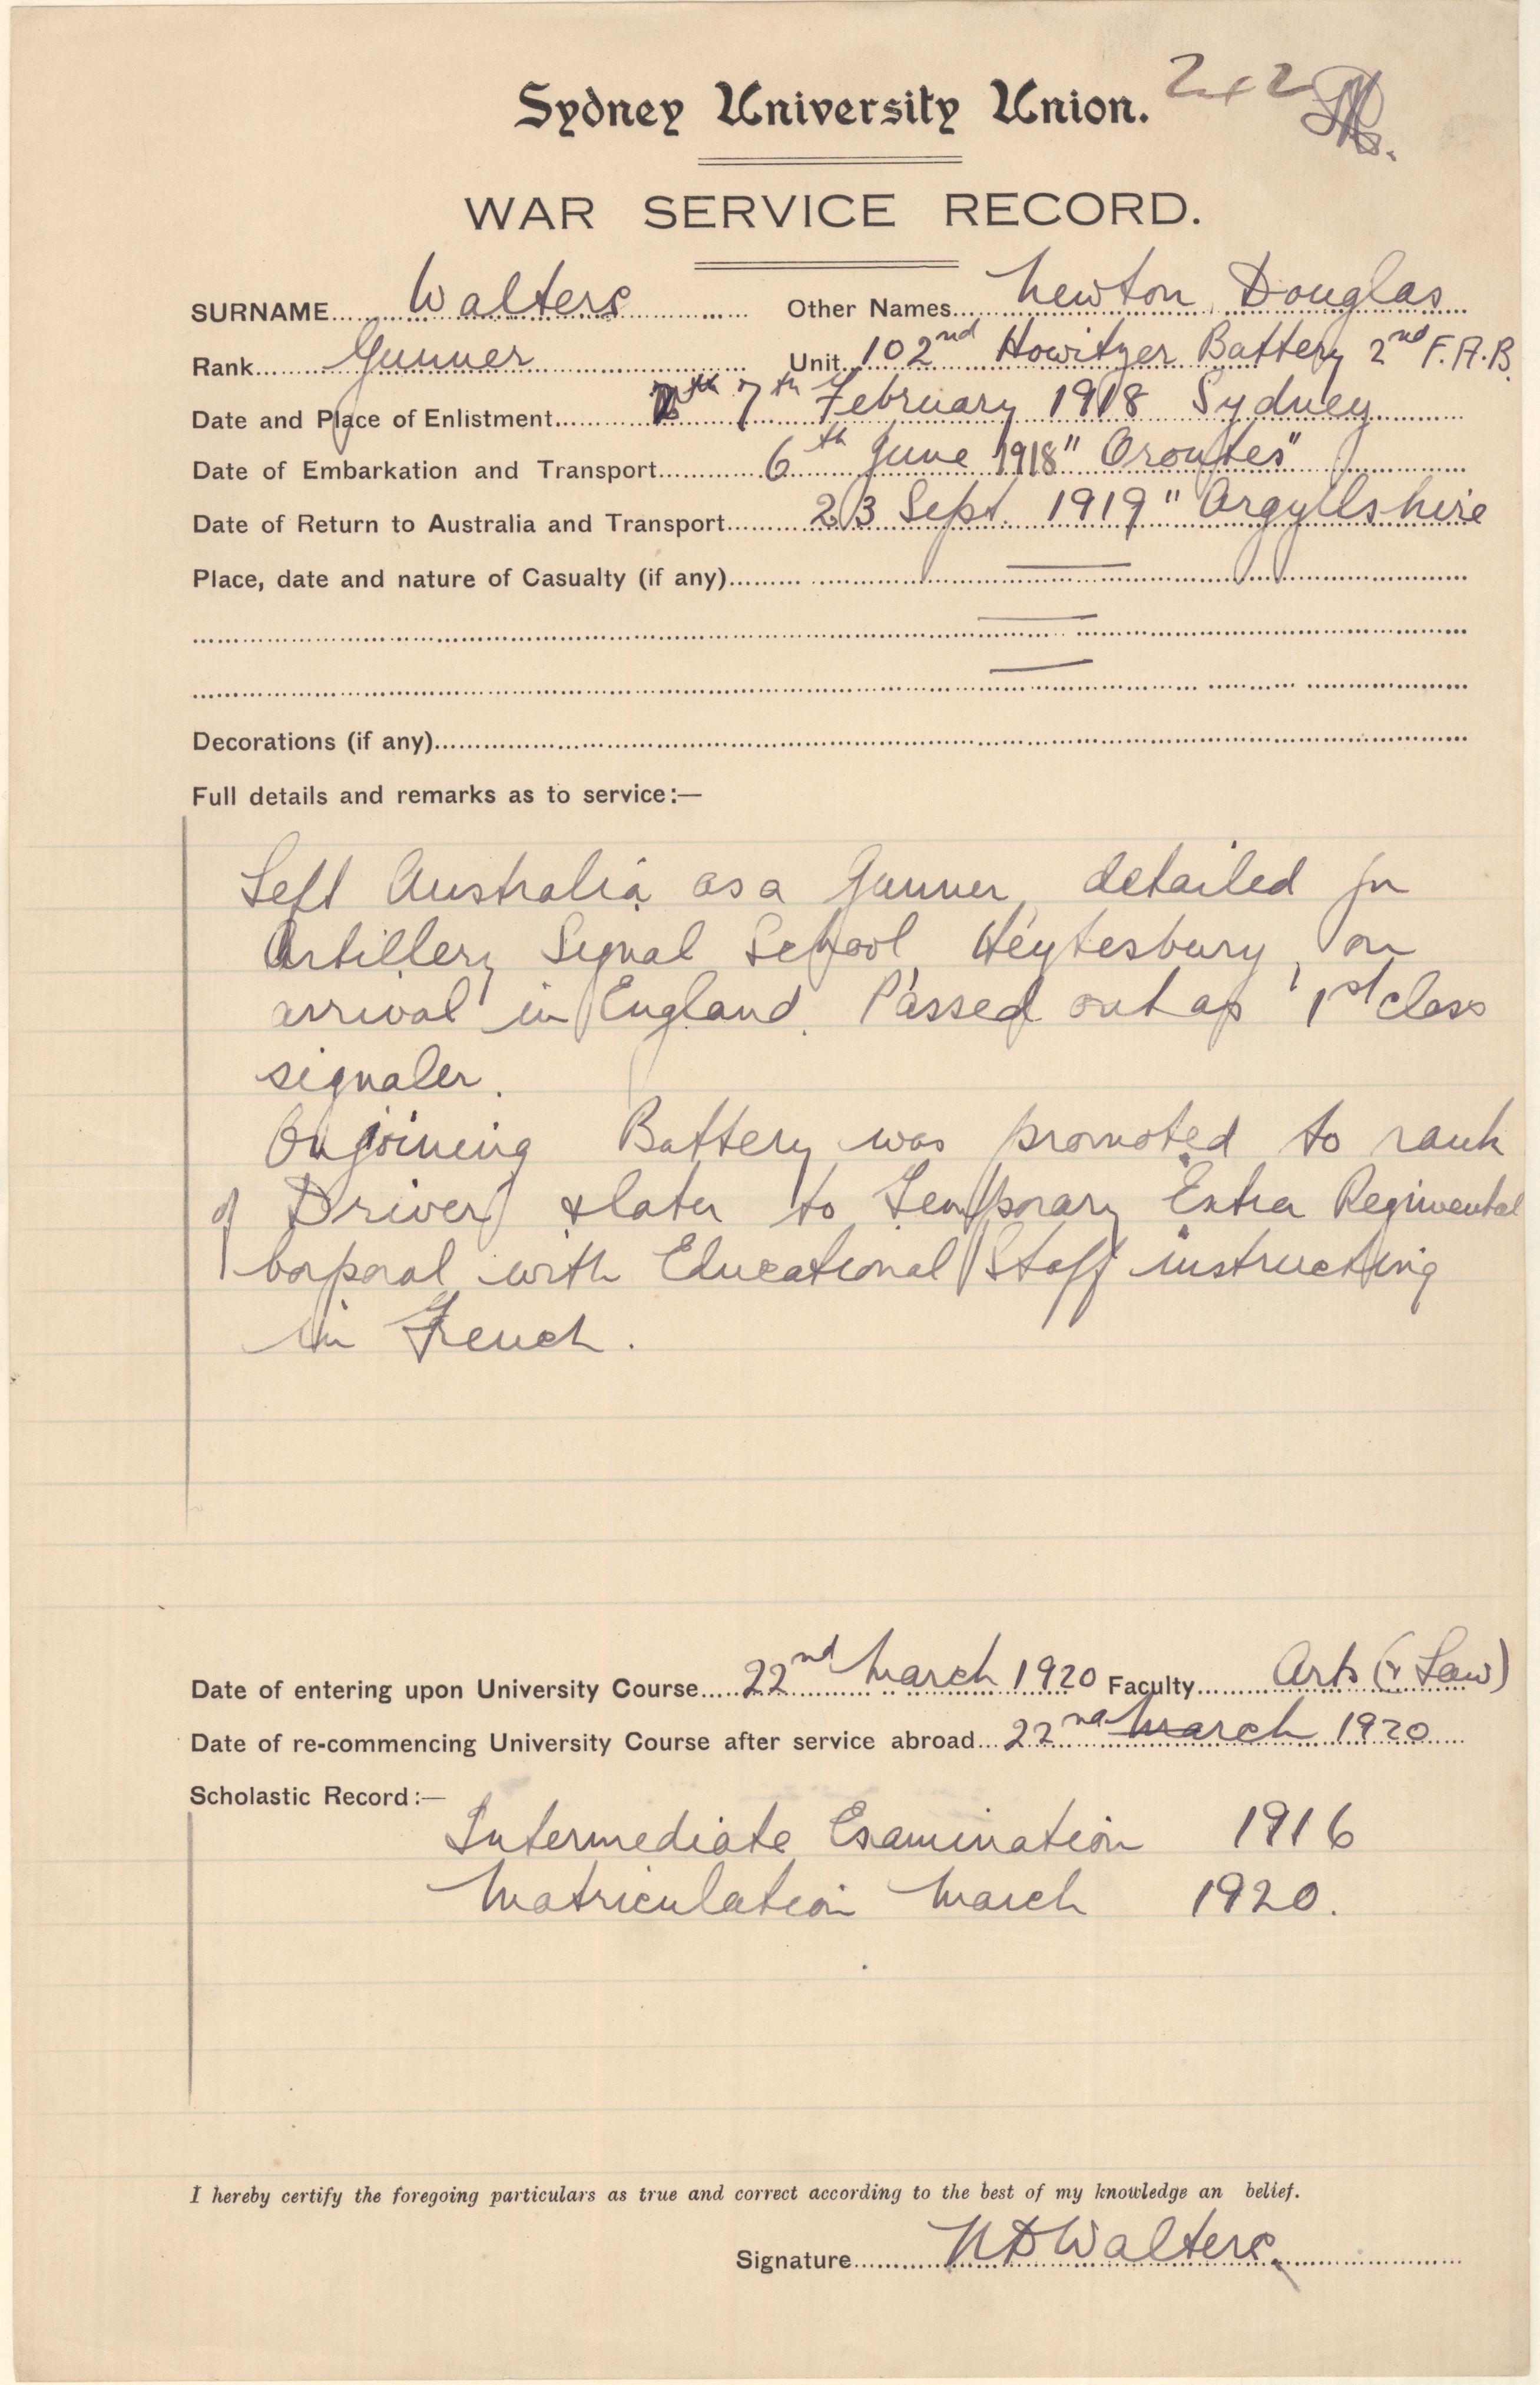 Sydney University Union. 2 & 2
WAR SERVICE RECORD.
SURNAME Walters Other Names Newton Douglas
Rank Gunner Unit 102nd Howitzer Battery 2nd F.A.B.
Date and Place of Enlistment 7th February 1918 Sydney
Date of Embarkation and Transport 6th June 1918 "Orontes"
Date of Return to Australia and Transport 23 Sept. 1919 "Argyllshire
Place, date and nature of Casualty (if any)
Decorations (if any)
Full details and remarks as to service:—
Left Australia as a Gunner, detailed for
Artillery Signal School, Heytesbury, on
arrival in England. Passed out as 1st class
signaler.
On joining Battery was promoted to rank
of Driver & later to Temporary Extra Regimental
Corporal with Educational Staff instructing
in French.
Date of entering upon University Course 22nd March 1920 Faculty Arts (& Law)
Date of re-commencing University Course after service abroad 22nd March 1920
Scholastic Record:—
Intermediate Examination 1916
Matriculation March 1920.
I hereby certify the foregoing particulars as true and correct according to the best of my knowledge an belief.
Signature N D Walters